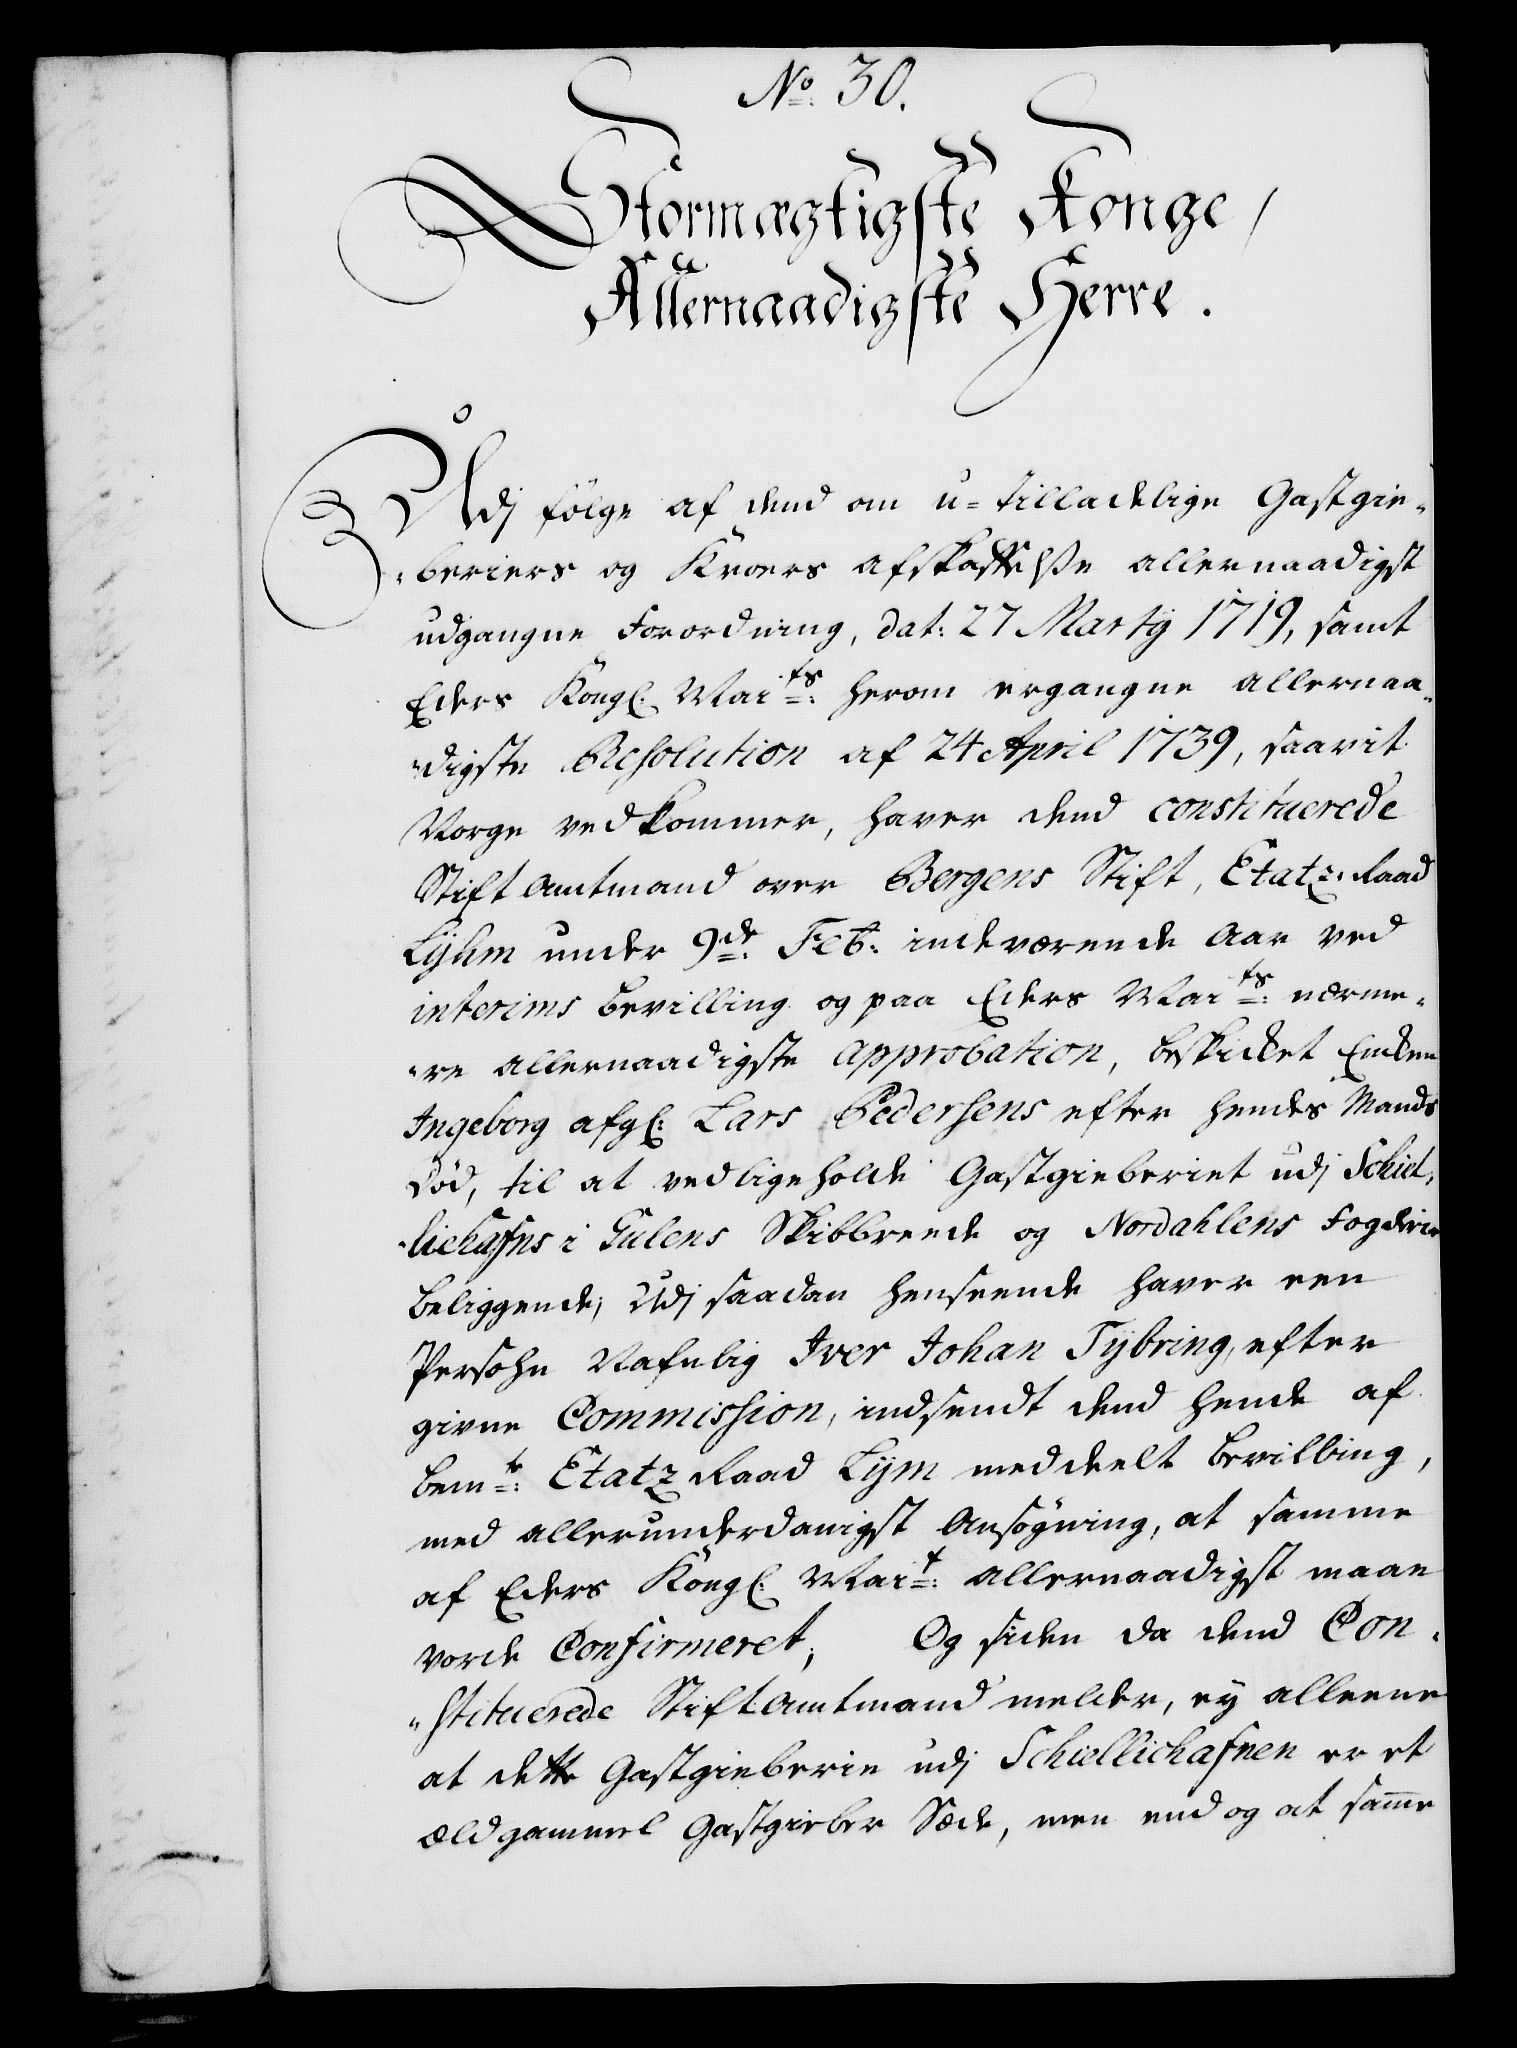 No. 30.
Stormægtigste Konge,
Allernaadigste Herre.
Udj følge af dend om u-tilladelige Gastgie-
beriers og Kroers afskaffelsse allernaadigst
udgangne Forordning, dat: 27 Martÿ 1719, samt
Eders Kongl. Maits: herom ergangne allernaa-
digste Resolution af 24 April 1739, saavit
Norge vedkommer, haver dend constituerede
Stiftamtmand over Bergens Stift, Etatz-Raad
Lÿhm under 9de: Feb: indeværende Aar ved
interims bevilling og paa Eders Maits: nærme-
re allernaadigste approbation, beskicket Encken
Ingeborg afgl: Lars Pedersens efter hendes Mands
død, til at vedligeholde Gastgieberiet udj Schiel-
liehafns i Gulens Skibbreede og Nordahlens Fogderie
beliggende; Udj saadan henseende haver een
Persohn Nafnlig Iver Johan Tÿbring, efter
given Commission, indsendt dend hende af
bemte: Etatz Raad Lÿm meddeelt bevilling,
med allerunderdanigst Ansøgning, at samme
af Eders Kongl: Mait: allernaadigst maae
vorde Confirmeret; Og siden da dend Con-
stituerede Stiftamtmand melder, ey alleene
at dette Gastgieberie udj Schiellichafnen er et
ældgammel Gastgieber Sæde, men end og at samme